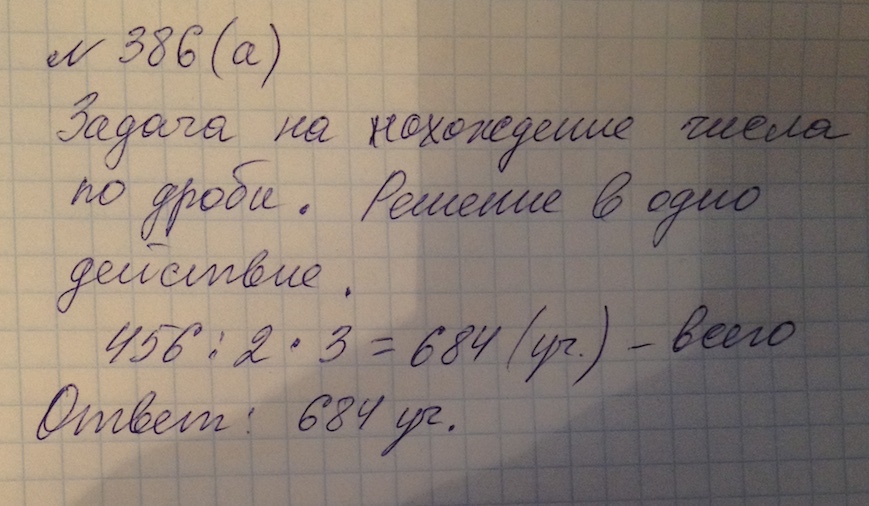 № 386 (а)
Задача на нохождение числа
по дроби. Решение в одно
действие.
456 : 2 · 3 = 684 (уч.) – всего
Ответ: 684 уч.